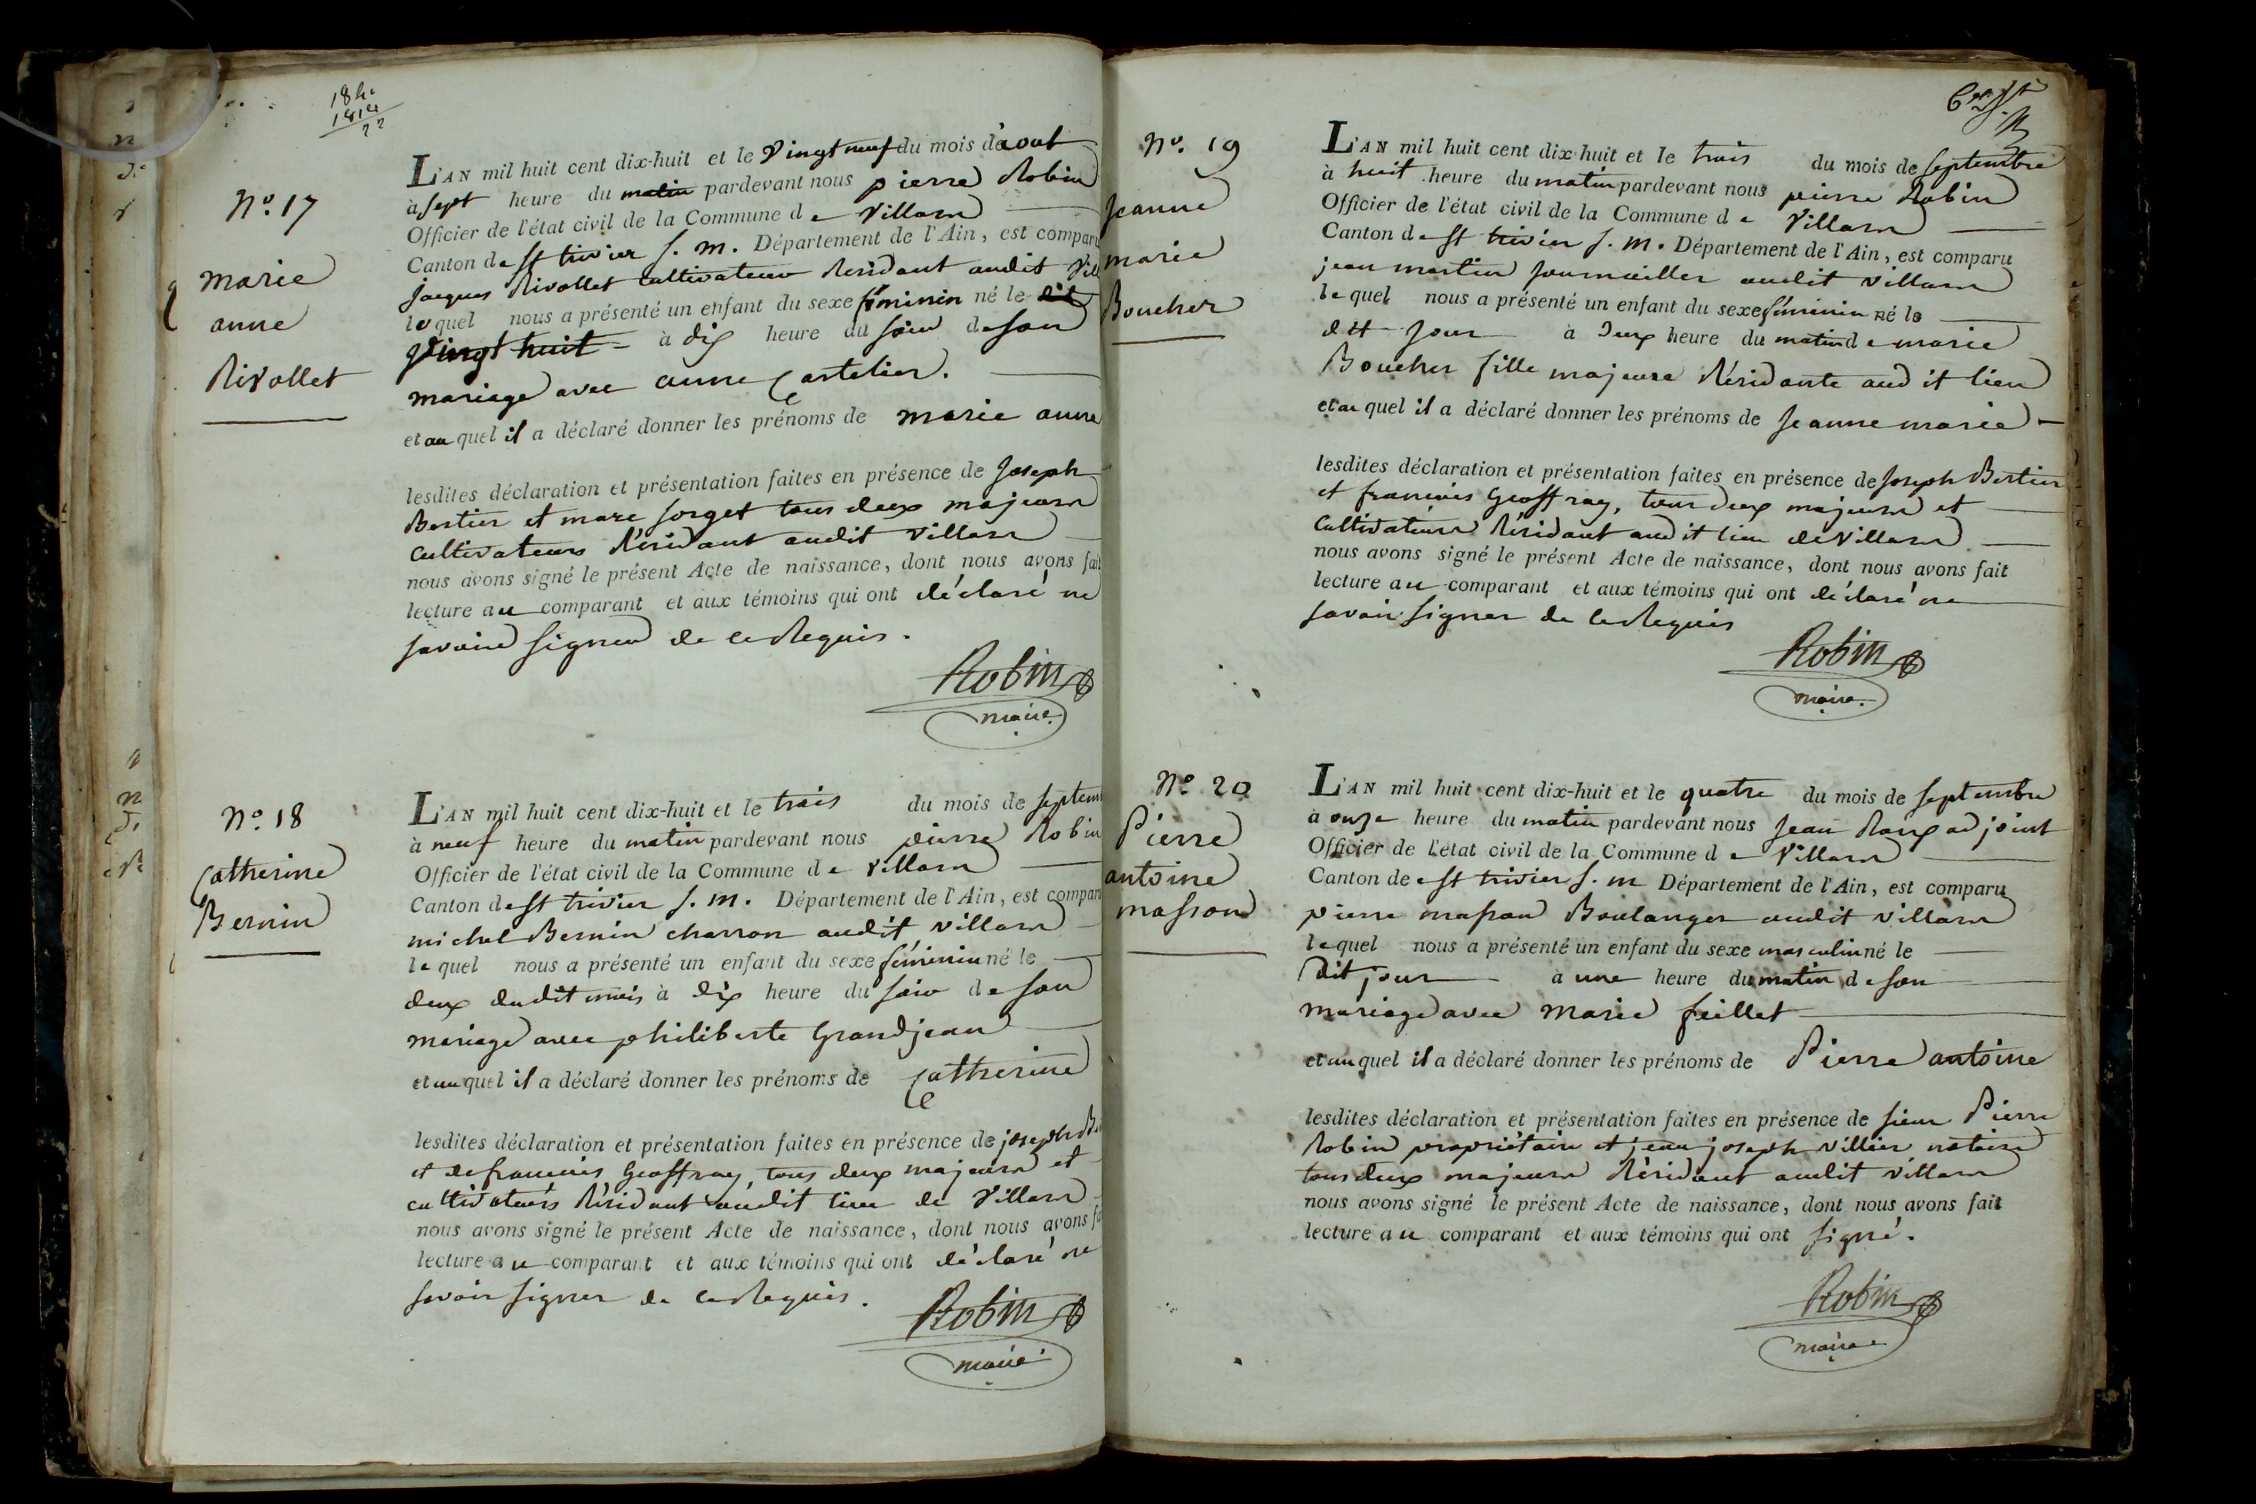 1840
1818
22
N.° 17
marie
anne
Rivollet
L'AN mil huit cent dix-huit et le Vingt neuf du mois d'aout
à sept heure du matin pardevant nous pierre Robin
Officier de l'état civil de la Commune de Villars
Canton de St trivier S. M. Département de l'Ain, est comparu
Jacques Rivollet Cultivateur Résidant audit Vill
lequel nous a présenté un enfant du sexe féminin né le dit
Vingt huit à dix heure du soir de son
mariage avec anne Cartelier.
et auquel il a déclaré donner les prénoms de marie anne
lesdites déclaration et présentation faites en présence de Joseph
Bertier et marc forget tous deux majeurs
cultivateurs Résidant audit Villars
nous avons signé le présent Acte de naissance, dont nous avons fait
lecture au comparant et aux témoins qui ont déclaré ne
savoir signer de ce Requis.
Robin
maire
N.° 18
Catherine
Bernin
L'AN mil huit cent dix-huit et le trois du mois de septem
à neuf heure du matin pardevant nous pierre Robin
Officier de l'état civil de la Commune de Villars
Canton de St trivier S. M. Département de l'Ain, est compar
michel Bernin charron audit villars
lequel nous a présenté un enfant du sexe féminin né le
deux dudit mois à dix heure du soir de son
mariage avec philiberte Grandjean
et auquel il a déclaré donner les prénoms de Catherine
lesdites déclaration et présentation faites en présence de joseph Be
et de francois Geoffray, tous deux majeurs et
cultivateurs Résidant audit lieu de Villars
nous avons signé le présent Acte de naissance, dont nous avons fa
lecture au comparant et aux témoins qui ont déclaré ne
savoir signer de ce Requis.
Robin
maire
N.° 19
Jeanne
marie
Boucher
L'AN mil huit cent dix-huit et le trois du mois de septembre
à huit heure du matin pardevant nous pierre Robin
Officier de l'état civil de la Commune de Villars
Canton de St trivier S. M. Département de l'Ain, est comparu
jean martin journailler audit villars
lequel nous a présenté un enfant du sexe féminin né le
dit jour à Deux heure du matin de marie
Boucher fille majeure Résidante aud it lieu
et au quel il a déclaré donner les prénoms de Jeanne marie
lesdites déclaration et présentation faites en présence de Joseph Bertier
et francois Geoffray, tous deux majeurs et
cultivateurs Résidant aud it lieu de Villars
nous avons signé le présent Acte de naissance, dont nous avons fait
lecture au comparant et aux témoins qui ont déclaré ne
savoir signer de ce Requis
Robin
maire.
N.° 20
Pierre
antoine
masson
L'AN mil huit cent dix-huit et le quatre du mois de septembre
à onze heure du matin pardevant nous Jean Roux adjoint
Officier de l'état civil de la Commune de Villars
Canton de St trivier S. M Département de l'Ain, est comparu
pierre masson Boulanger audit villars
lequel nous a présenté un enfant du sexe masculin né le
Dit jour à une heure du matin de son
mariage avec marie feillet
et auquel il a déclaré donner les prénoms de Pierre antoine
lesdites déclaration et présentation faites en présence de sieur Pierre
Robin propriétaire et jean joseph villier notaire
tous deux majeurs Résidant audit villars
nous avons signé le présent Acte de naissance, dont nous avons fait
lecture au comparant et aux témoins qui ont signé.
Robin
maire